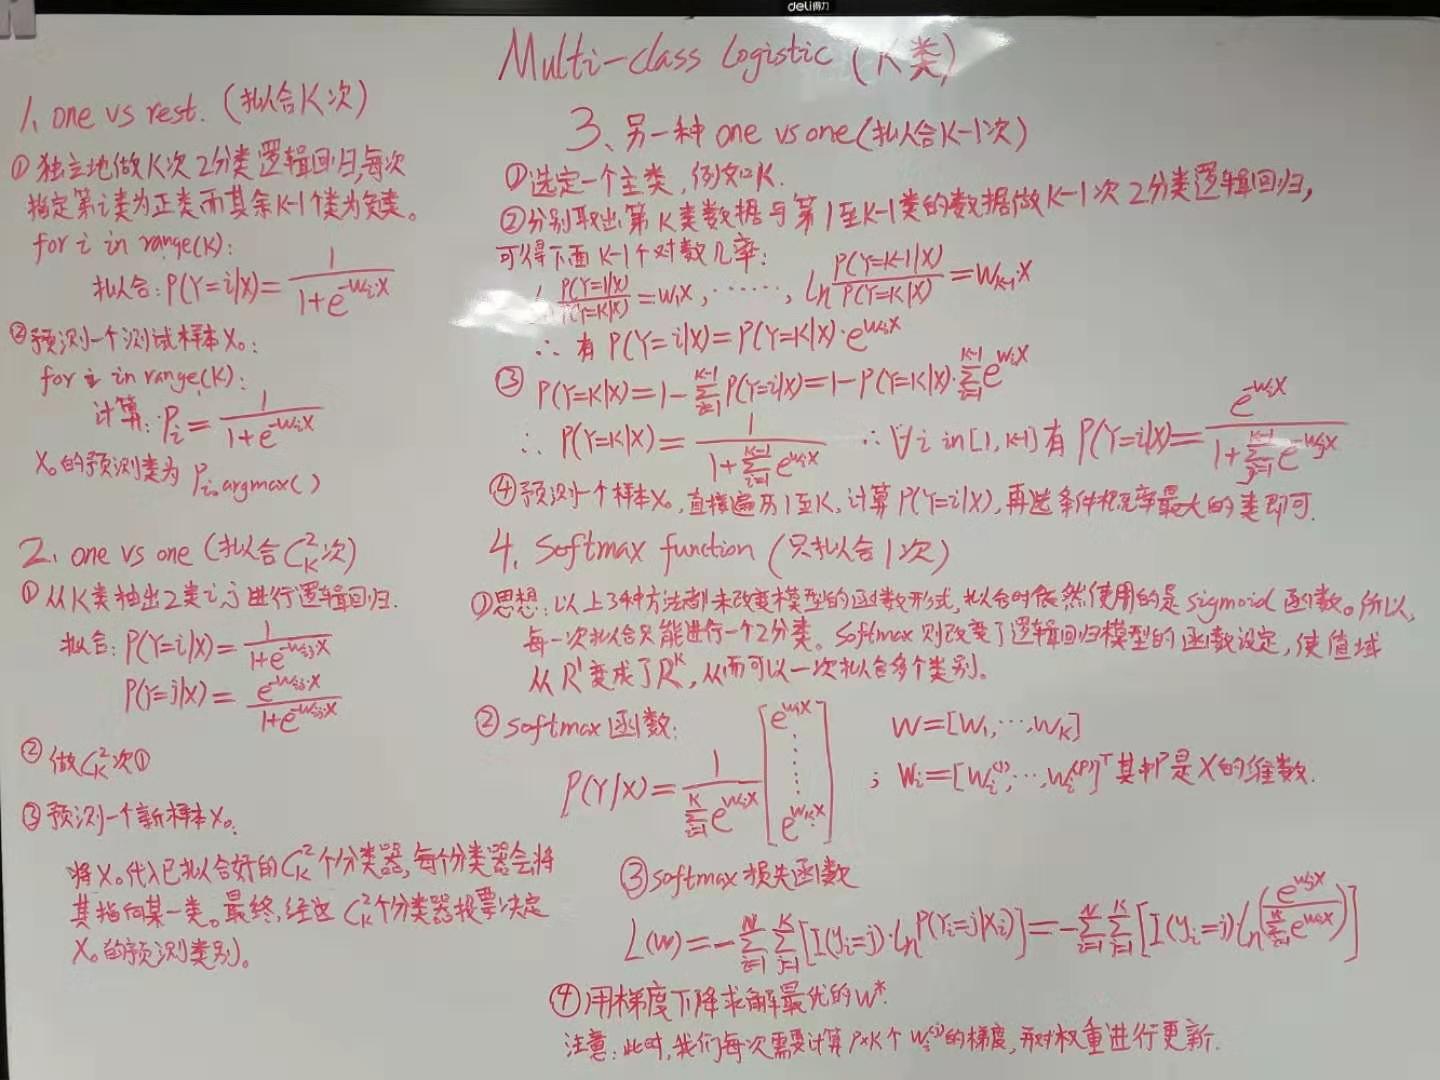 deli得力
Multi-class Logistic (K类)
1、one vs rest. (拟合K次)
①独立地做K次2分类逻辑回归,每次
指定第i类为正类而其余K-1个类为负类。
for i in range(K):
拟合: P(Y=i|X)=1/(1+e^{-W_i·X})
②预测一个测试样本X₀:
for i in range(K):
计算: P_i=1/(1+e^{-W_iX})
X₀的预测类为 P_i.argmax()
2、one vs one (拟合C_K^2次)
①从K类抽出2类i,j进行逻辑回归.
拟合: P(Y=i|X)=1/(1+e^{-W_{ij}·X})
P(Y=j|X)=e^{-W_{ij}·X}/(1+e^{-W_{ij}·X})
②做C_K^2次①
③预测一个新样本X₀:
将X₀代入已拟合好的C_K^2个分类器,每个分类器会将
其指向某一类。最终,经过C_K^2个分类器投票决定
X₀的预测类别。
3、另一种one vs one(拟合K-1次)
①选定一个主类,例如K.
②分别取出第K类数据与第1至K-1类的数据做K-1次2分类逻辑回归,
可得下面K-1个对数几率:
P(Y=1|X)/P(Y=K|X)=W₁X, ……, ln P(Y=K-1|X)/P(Y=K|X)=W_{K-1}·X
∴ 有 P(Y=i|X)=P(Y=K|X)·e^{W_iX}
③ P(Y=K|X)=1-∑_{i=1}^{K-1}P(Y=i|X)=1-P(Y=K|X)·∑_{i=1}^{K-1}e^{W_iX}
∴ P(Y=K|X)=1/(1+∑_{i=1}^{K-1}e^{W_iX}) ∴∀i in[1,K-1]有P(Y=i|X)=e^{-W_iX}/(1+∑_{j=1}^{K-1}e^{-W_jX})
④预测一个样本X₀,直接遍历1至K,计算P(Y=i|X),再选条件概率最大的类即可.
4、Softmax function (只拟合1次)
①思想:以上3种方法都未改变模型的函数形式,拟合时依然使用的是sigmoid函数。所以,
每一次拟合只能进行一个2分类。Softmax则改变了逻辑回归模型的函数设定,使值域
从R¹变成了R^K,从而可以一次拟合多个类别。
②softmax函数:
P(Y|X)=1/∑_{i=1}^{K}e^{W_iX} [e^{W_1X} ⋮ e^{W_K·X}] ;
W=[W₁,…,W_K]
W_i=[W_i^{(1)},…,W_i^{(P)}]^T 其中P是X的维数.
③softmax损失函数
L(W)=-∑_{i=1}^{N}∑_{j=1}^{K}[I(y_i=j)·ln P(Y_i=j|X_i)]=-∑_{i=1}^{N}∑_{j=1}^{K}[I(y_i=j)ln(e^{W_jX}/∑_{i=1}^{K}e^{W_iX})]
④用梯度下降求解最优的W*.
注意:此时,我们每次需要计算P×K个W_i^{(j)}的梯度,再对权重进行更新.